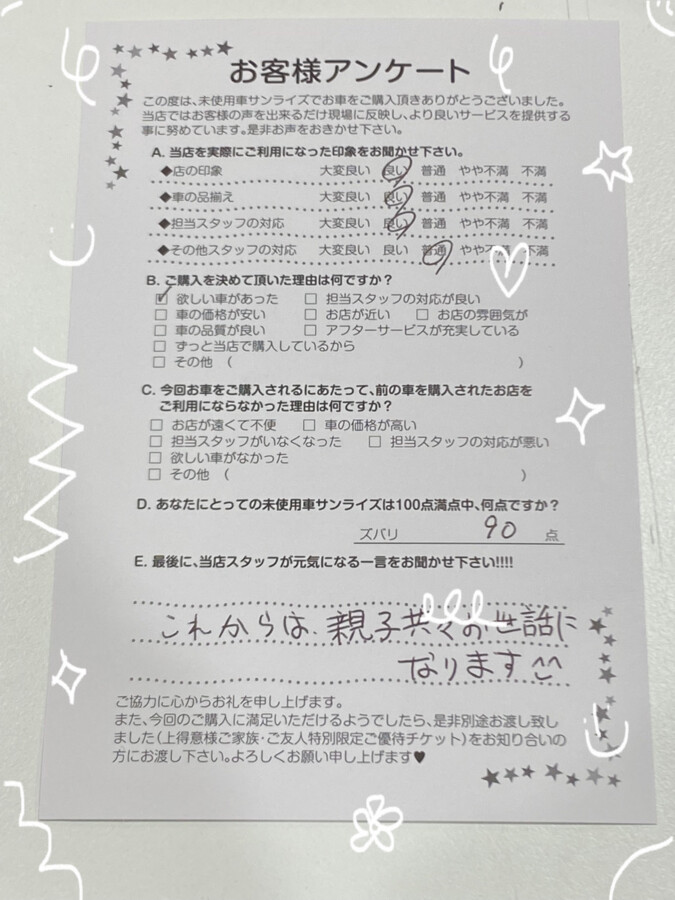 お客様アンケート
この度は、未使用車サンライズでお車をご購入頂きありがとうございました。
当店ではお客様の声を出来るだけ現場に反映し、より良いサービスを提供する
事に努めています。是非お声をおきかせ下さい。
A. 当店を実際にご利用になった印象をお聞かせ下さい。
◆店の印象 大変良い 良い 普通 やや不満 不満
◆車の品揃え 大変良い 良い 普通 やや不満 不満
◆担当スタッフの対応 大変良い 良い 普通 やや不満 不満
◆その他スタッフの対応 大変良い 良い 普通 やや不満 不満
B. ご購入を決めて頂いた理由は何ですか?
☑ 欲しい車があった □ 担当スタッフの対応が良い
□ 車の価格が安い □ お店が近い □ お店の雰囲気が
□ 車の品質が良い □ アフターサービスが充実している
□ ずっと当店で購入しているから
□ その他 ( )
C. 今回お車をご購入されるにあたって、前の車を購入されたお店を
ご利用にならなかった理由は何ですか?
□ お店が遠くて不便 □ 車の価格が高い
□ 担当スタッフがいなくなった □ 担当スタッフの対応が悪い
□ 欲しい車がなかった
□ その他 ( )
D. あなたにとっての未使用車サンライズは100点満点中、何点ですか?
ズバリ 90 点
E. 最後に、当店スタッフが元気になる一言をお聞かせ下さい!!!!
これからは、親子共々お世話に
なります^^
ご協力に心からお礼を申し上げます。
また、今回のご購入に満足いただけるようでしたら、是非別途お渡し致し
ました(上得意様ご家族・ご友人特別限定ご優待チケット)をお知り合いの
方にお渡し下さい。よろしくお願い申し上げます♥